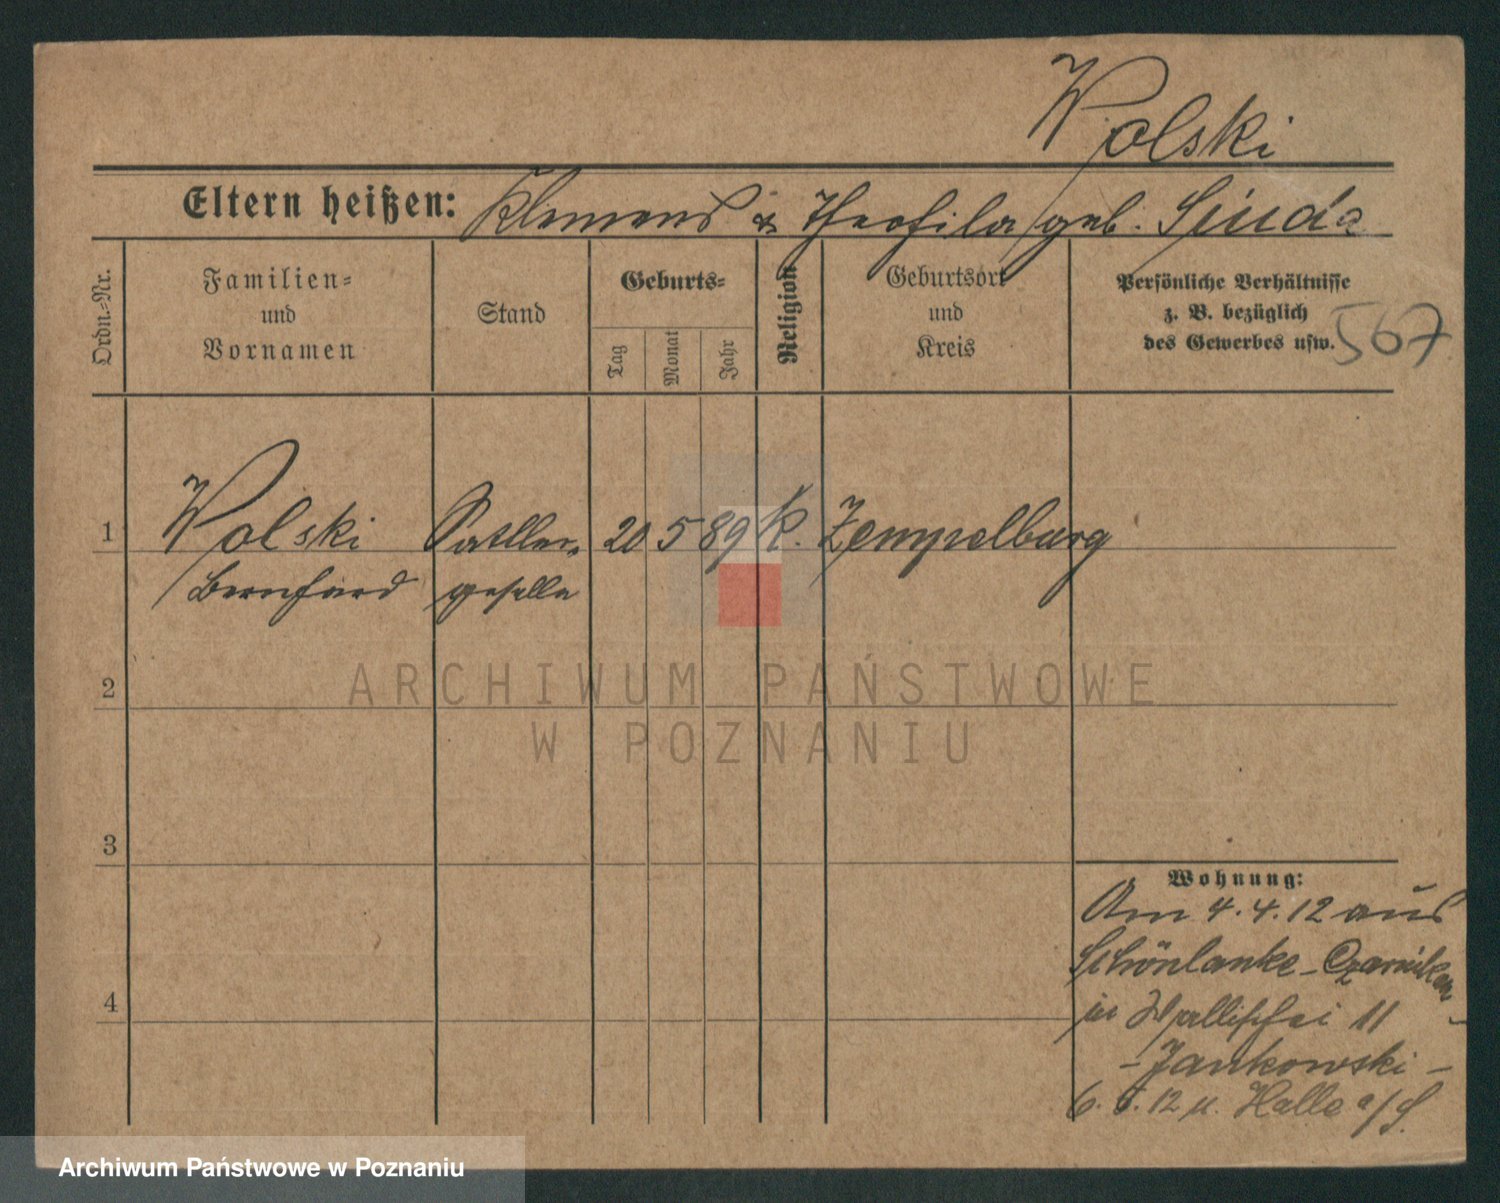 Wolski
Eltern heißen: Klemens & Theofila geb. Siuda
Ordn.-Nr.
Familien-
und
Vornamen
Stand
Geburts-
Tag
Monat
Jahr
Religion
Geburtsort
und
Kreis
Persönliche Verhältnisse
z. B. bezüglich
des Gewerbes usw.
567
1 Wolski Sattler- 20 5 89 K. Zempelburg
Bernhard geselle
2
3
4
ARCHIWUM PAŃSTWOWE
W POZNANIU
Wohnung:
Am 4.4.12 aus
Schönlanke - Czarnikau
in Wallischei 11
- Jankowski -
6. 12 n. Halle a/S.
Archiwum Państwowe w Poznaniu